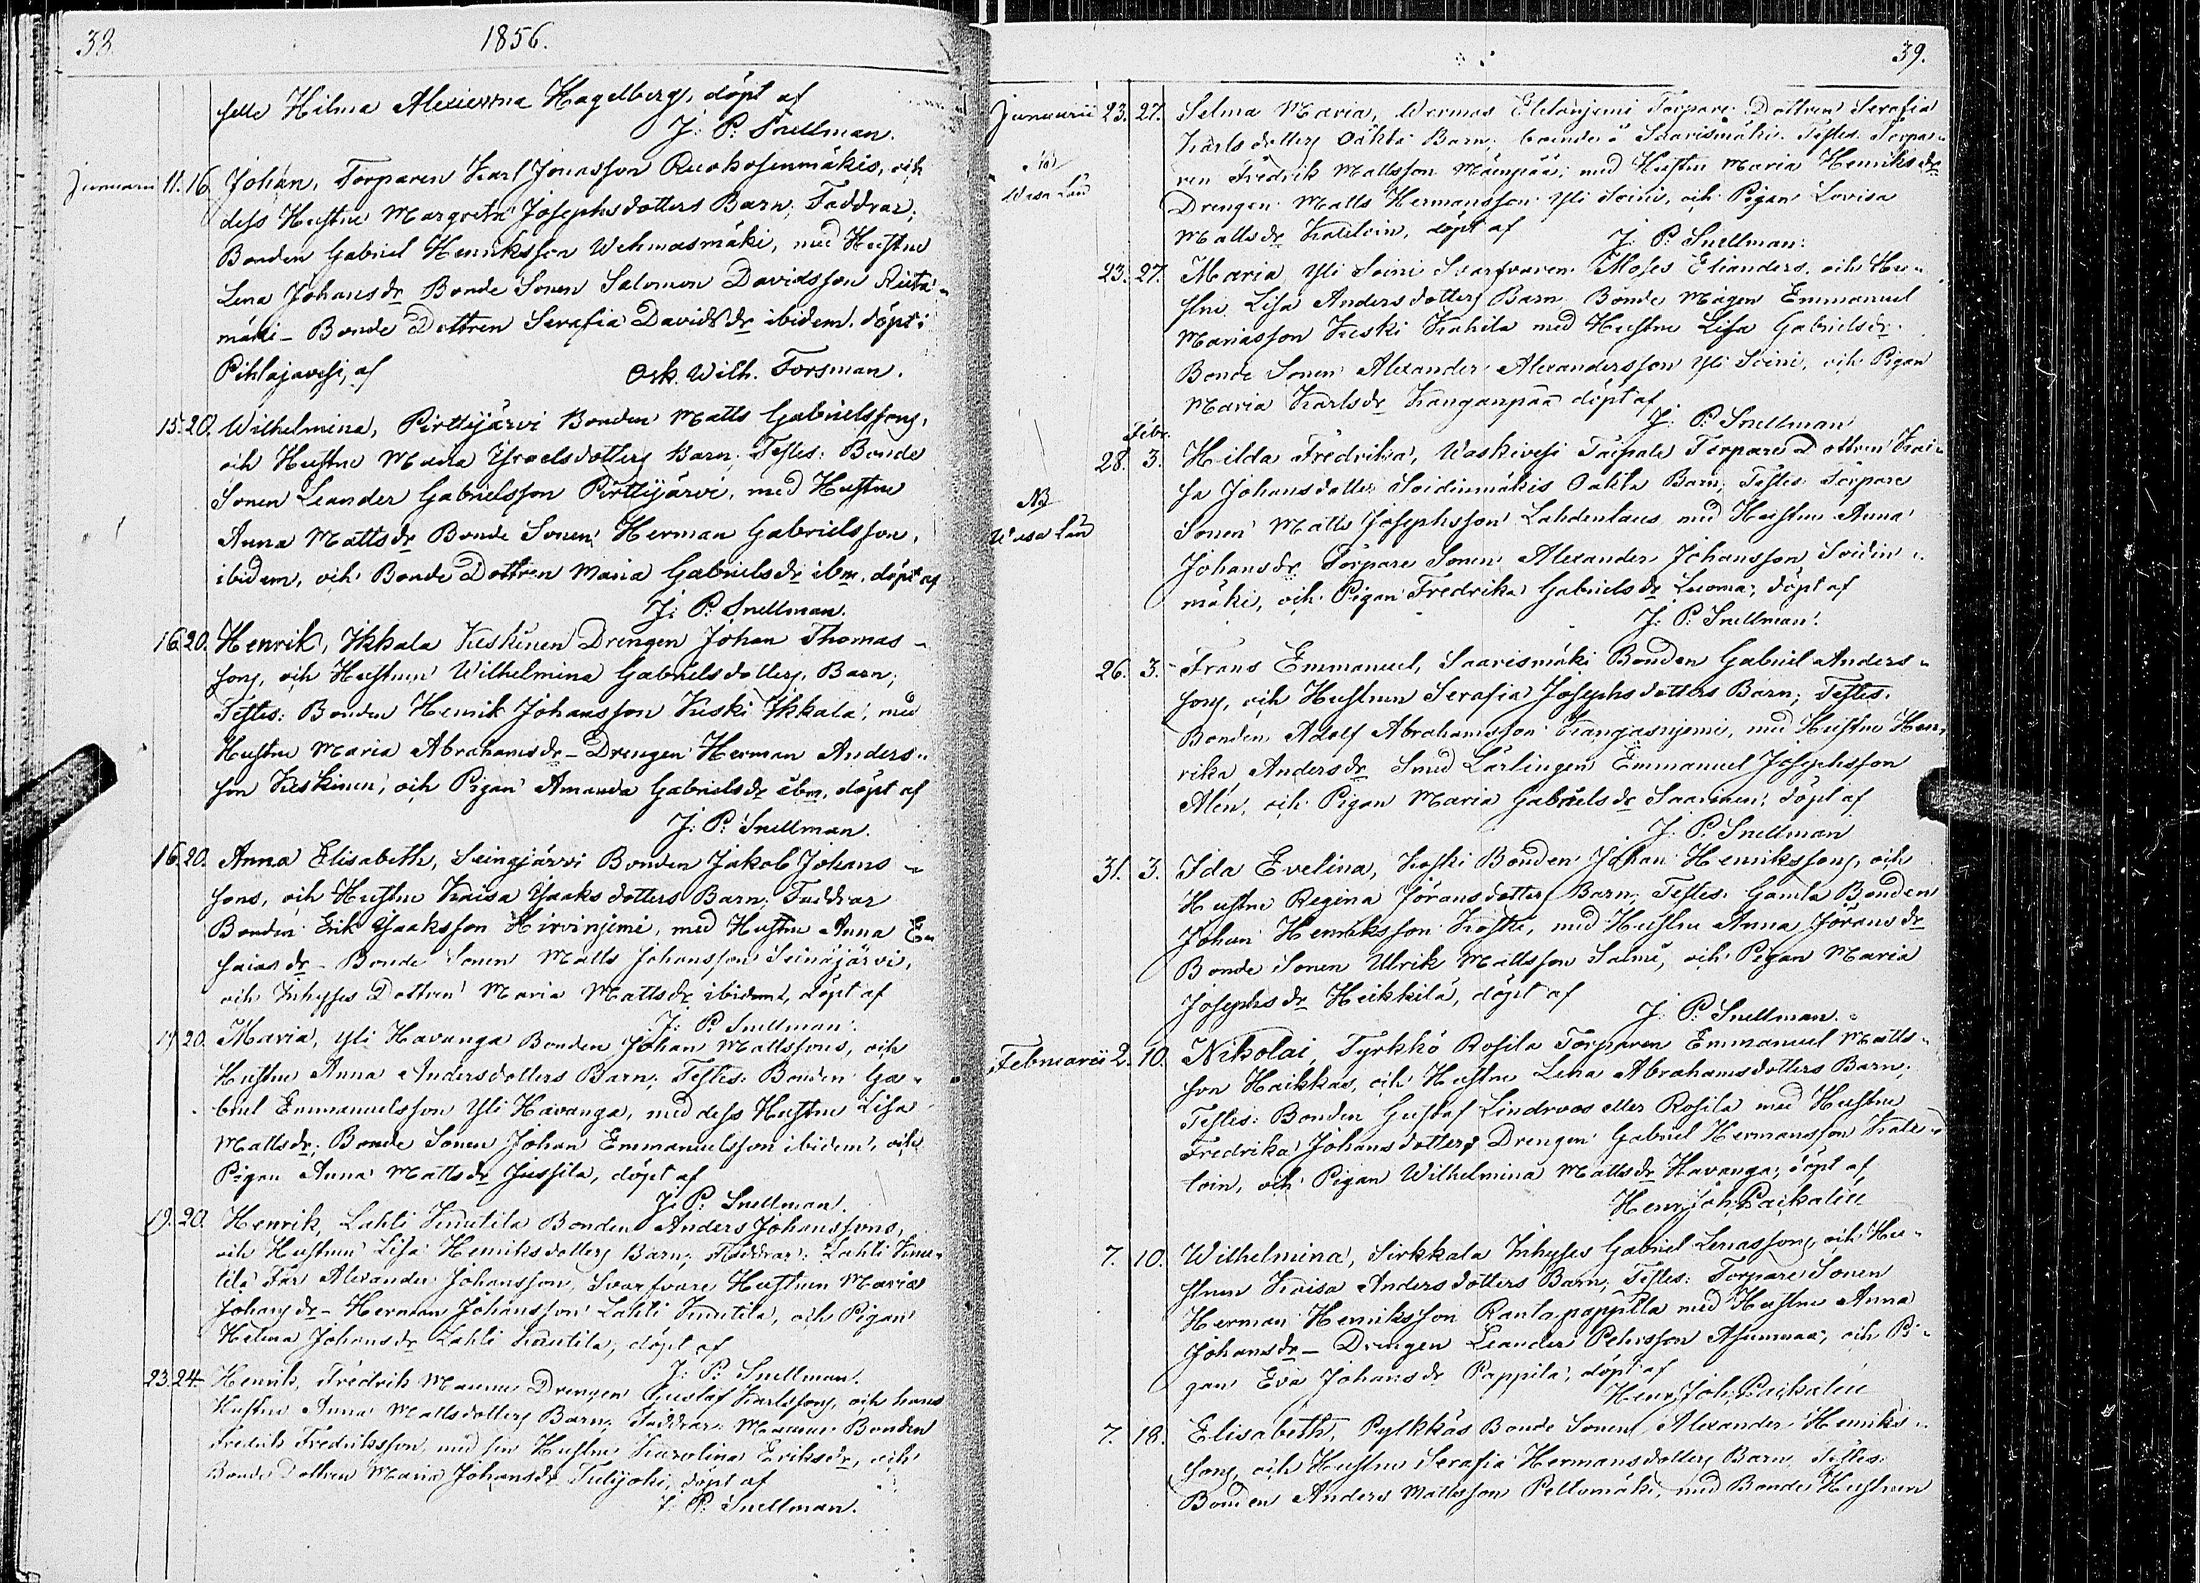 38.
1856.
selle Hilma Alexierna Hagelberg, döpt af
J. P. Snellman.
Januarii 11. 16. Johan, Torparen Karl Jonasson Ruokosenmäkis, och
dess Hustru Margreta Josephsdotters Barn; Faddrar;
Bonden Gabriel Henriksson Wehmasmäki, med Hustru
Lena Johansdr Bonde Sonen Salomon Davidsson Riita-
mäki – Bonde Dottren Serafia Davidsdr ibidem. döpt i
Pihlajavesi, af Osk. Wilh. Forsman.
15. 20. Wilhelmina, Pirttijärvi Bonden Matts Gabrielssons,
och Hustru Maria Ysraelsdotters Barn; Testes: Bonde
Sonen Leander Gabrielsson Pirttijärvi, med Hustru
Anna Mattsdr Bonde Sonen Herman Gabrielsson,
ibidem, och Bonde Dottren Maria Gabrielsdr ibm, döpt af
J. P. Snellman.
16. 20. Henrik, Ikkala Keskinen Drengen Johan Thomas-
sons, och Hustrun Wilhelmina Gabrielsdotters, Barn;
Testes: Bonden Henrik Johansson Keski Ikkala, med
Hustru Maria Abrahamsdr – Drengen Herman Anders-
son Keskinen, och Pigan Amanda Gabrielsdr ibm, döpt af
J. P. Snellman.
16. 20. Anna Elisabeth, Seinäjärvi Bonden Jakob Johans-
sons, och Hustru Kaisa Ysaksdotters Barn; Faddrar
Bonden Erik Ysaksson Hirvinjemi, med Hustru Anna E-
saiasdr – Bonde Sonen Matts Johansson Seinäjärvi,
och Inhyses Dottren Maria Mattsdr ibidem, döpt af
J. P. Snellman.
17. 20. Maria, Yli Havanga Bonden Johan Mattssons, och
Hustru Anna Andersdotters Barn; Testes: Bonden Ga-
briel Emmanuelsson Yli Havanga, med dess Hustru Lisa
Mattsdr; Bonde Sonen Johan Emmanuelsson ibidem, och
Pigan Anna Mattsdr Jussila, döpt af
J. P. Snellman.
19. 20. Henrik, Lahti Knutila Bonden Anders Johanssons,
och Hustrun Lisa Henriksdotters Barn; Faddrar: Lahti Knu-
tila Far Alexander Johansson, Svarfvare Hustrun Maria
Johansdr – Herman Johansson Lahti Knutila, och Pigan
Helena Johansdr Lahti Knutila, döpt af
J. P. Snellman.
23. 24. Henrik, Fredrik Drengen Gustaf Karlssons, och hans
Hustru Anna Mattsdotters Barn; Faddrar: Bonden
Fredrik Fredriksson, med sin Hustru Karolina Eriksdr, och
Bonde Dottren Maria Johansdr Tulijoki, döpt af
J. P. Snellman.
39.
Januarii 23. 27. Selma Maria, Wermas Etelänjemi Torpare Dottren Serafia
Karlsdotters Oäkta Barn; boende i Saarismäki. Testes. Torpa-
NB
ren Fredrik Mattsson Mäenpää, med Hustru Maria Henriksdr
Wasa Län
Drengen Matts Hermansson Yli Soini, och Pigan Lovisa
Mattsdr Kateloin, döpt af J. P. Snellman.
23. 27. Maria Yli Soini Svarfvaren Moses Elianders, och Hu-
stru Lisa Andersdotters Barn Bonde Mågen Emmanuel
Mariasson Keski Kahila med Hustru Lisa Gabrielsdr.
Bonde Sonen Alexander Alexandersson Yli Soini, och Pigan
Maria Karlsdr Kanganpää döpt af
J. P. Snellman
Febr.
28. 3. Hilda Fredrika, Waskivesi Taipale Torpare Dottren Kai-
sa Johansdotters Soidinmäkis Oäkta Barn; Testes Torpare
NB
Sonen Matts Josephsson Lahdenlaus med Hustru Anna
Wasa Län
Johansdr Torpare Sonen Alexander Johansson Soidin-
mäki, och Pigan Fredrika Gabrielsdr Luoma; döpt af
J. P. Snellman.
26. 3. Frans Emmanuel, Saarismäki Bonden Gabriel Anders-
sons, och Hustrun Serafia Josephsdotters Barn; Testes.
Bonden Adolf Abrahamsson Kangasnjemi, med Hustru Hen-
rika Andersdr Smed Lärlingen Emmanuel Josephsson
Alén, och Pigan Maria Gabrielsdr Saarinen; döpt af
J. P. Snellman
31. 3. Ida Evelina, Koski Bonden Johan Henrikssons, och
Hustru Regina Jöransdotters Barn; Testes. Gamla Bonden
Johan Henriksson Koski, med Hustru Anna Jöransdr
Bonde Sonen Ulrik Mattsson Salmi, och Pigan Maria
Josephsdr Heikkilä, döpt af
J. P. Snellman.
Februarii 2. 10. Nikolai, Tyrkkö Rosila Torparen Emmanuel Matts-
son Haikkas, och Hustru Lena Abrahamsdotters Barn;
Testes: Bonden Gustaf Lindroos eller Rosila med Hustru
Fredrika Johansdotters Drengen Gabriel Hermansson Kate-
loin, och Pigan Wilhelmina Mattsdr Havanga; döpt af
Henr. Joh.
7. 10. Wilhelmina, Sirkkala Inhyses Gabriel Lenassons, och Hu-
strun Kaisa Andersdotters Barn; Testes: Torpare Sonen
Herman Henriksson Rantapappilla med Hustru Anna
Johansdr – Drengen Leander Pehrsson Asunmaa, och Pi-
gan Eva Johansdr Pappila, döpt af
Henr. Joh.
7. 18. Elisabeth, Pylkkäs Bonde Sonens Alexander Henriks-
sons, och Hustru Serafia Hermansdotters Barn Testes:
Bonden Anders Mattsson Peltomäki, med Bonde Hustrun